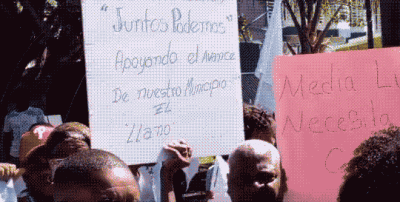 "Juntos Podemos"
Apoyando el Avance
De nuestro Municipio
EL
Llano
Media L
Necesita
C